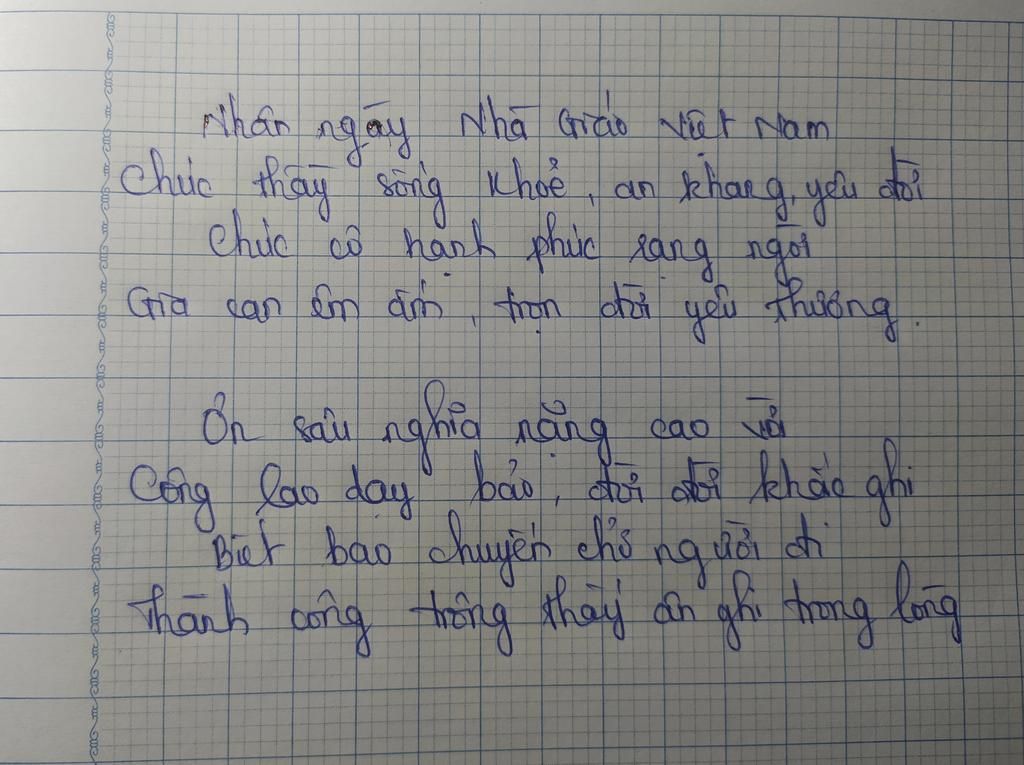 Nhân ngày Nhà Giáo Việt Nam
Chúc thầy sống khoẻ, an khang, yêu đời
Chúc cô hạnh phúc rạng ngời
Gia can êm ấm, trọn đời yêu thương.
Ơn sâu nghĩa nặng cao vời
Công lao dạy bảo, đời đời khắc ghi
Biết bao chuyến chở người đi
Thành công trồng thầy ân ghi trong lòng